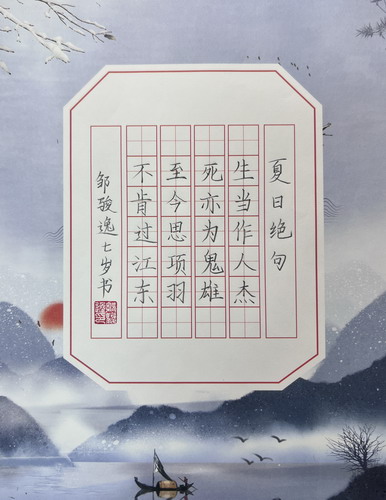 夏日绝句
生当作人杰
死亦为鬼雄
至今思项羽
不肯过江东
邹骏逸七岁书